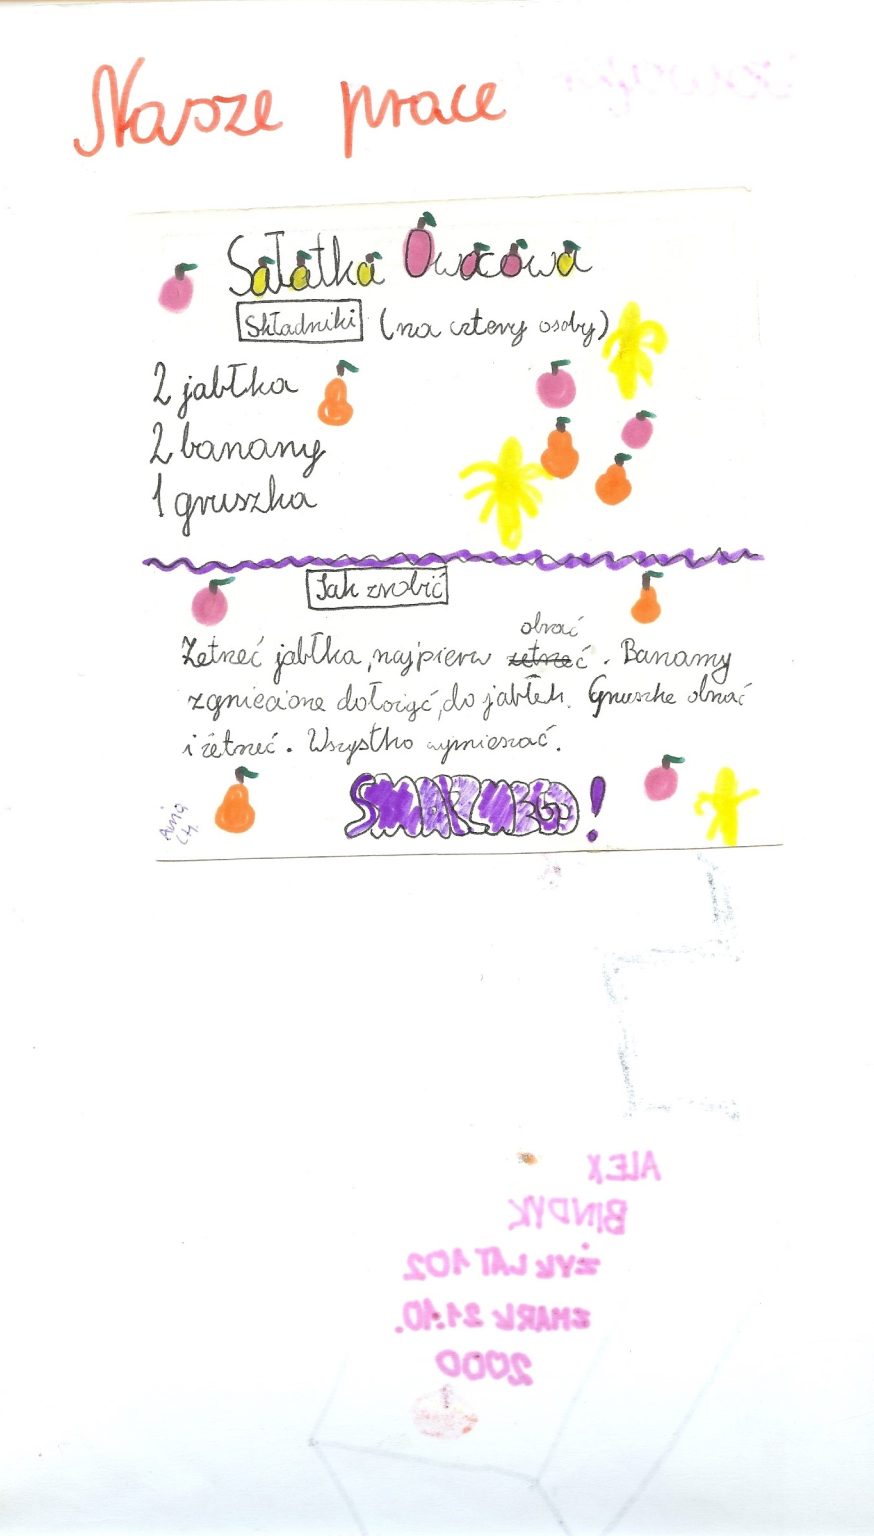 Nasze prace
Sałatka Owocowa
Składniki (na cztery osoby)
2 jabłka
2 banany
1 gruszka
Jak zrobić
obrać
Zetrzeć jabłka, najpierw zetrzeć. Banamy
zgniecione dołożyć, do jabłek. Gruszke obrać
i zetrzeć. Wszystko wymieszać.
SMACZNEGO!
ALEX
BINDYK
ŻYŁ LAT 102
ZMARŁ 21.10.
2000